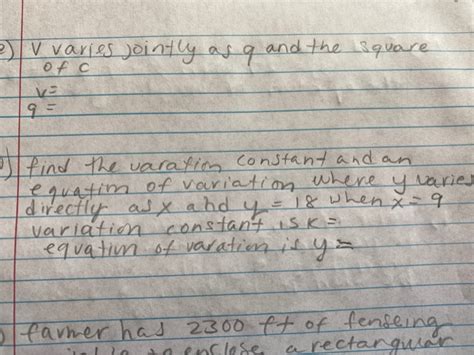 e) V varies jointly as q and the square
of c
v=
q=
) find the varation constant and an
equation of variation where y varies
directly as x and y = 18 when x = 9
variation constant is k =
equation of varation is y =
) farmer has 2300 ft of fenseing
to enclose a rectangular